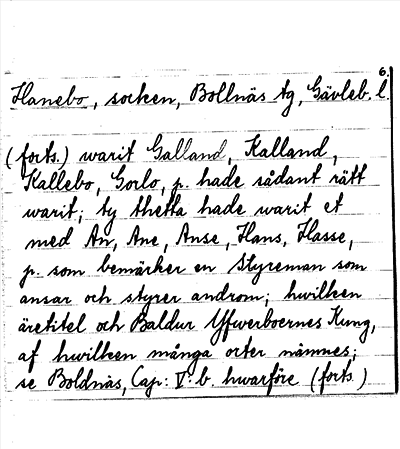 6.
Hanebo, socken, Bollnäs tg, Gävleb. l.
(forts.) warit Galland, Kalland,
Kallebo, Gorlo, p. hade sådant rätt
warit; ty thetta hade warit et
med An, Ane, Anse, Hans, Hasse,
p. som bemärker en Styreman som
ansar och styrer androm; hwilken
äretitel och Baldur Yfwerboernes Kung,
af hwilken många orter nämnes;
se Boldnäs, Cap: V. b. hwarföre (forts.)